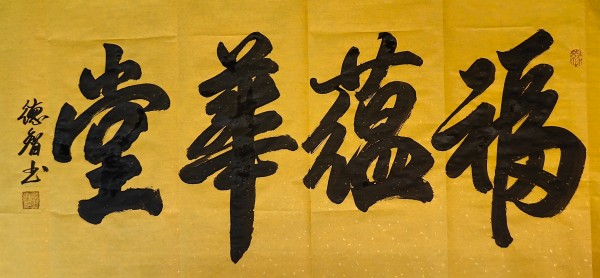 福蕴華堂
德智书